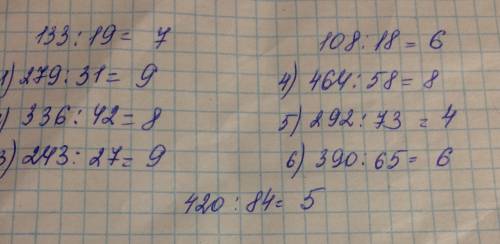 133 : 19 = 7
1) 279 : 31 = 9
2) 336 : 42 = 8
3) 243 : 27 = 9
108 : 18 = 6
4) 464 : 58 = 8
5) 292 : 73 = 4
6) 390 : 65 = 6
420 : 84 = 5